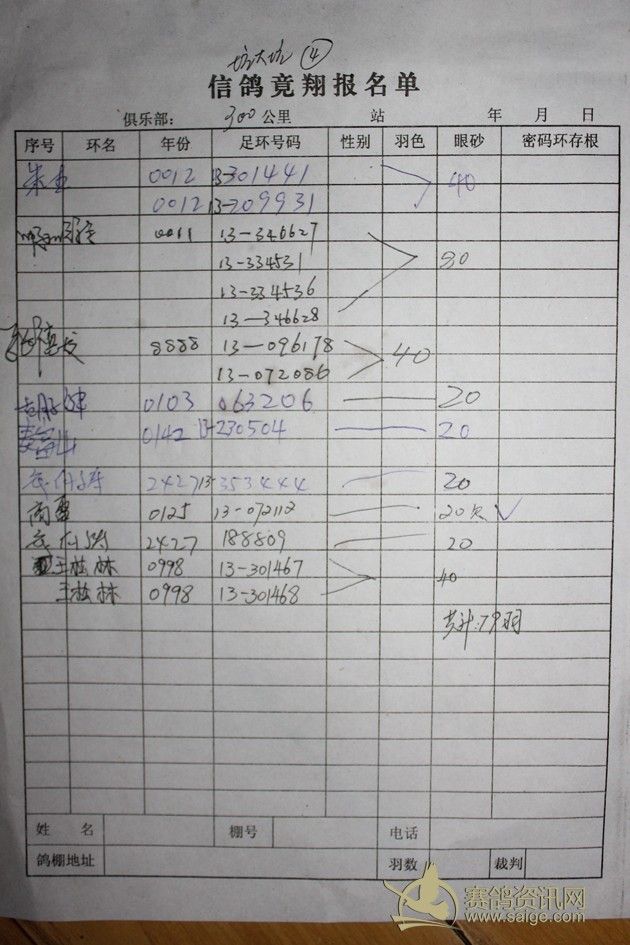 ④
信鸽竟翔报名单
俱乐部: 300 公里 站 年 月 日
序号 环名 年份 足环号码 性别 羽色 眼砂 密码环存根
0012 13-301441 40
0012 13-209931
0011 13-346627
13-334531 80
13-334536
13-346628
8888 13-096178 40
13-072086
0103 063206 20
0142 13-230504 20
2427 13-353444 20
0125 13-072112 20欠 ✓
2427 188809 20
王松林 0998 13-301467 40
王松林 0998 13-301468
共计:79羽
姓 名 棚号 电话
鸽棚地址 羽数 裁判
赛鸽资讯网
www.saige.com